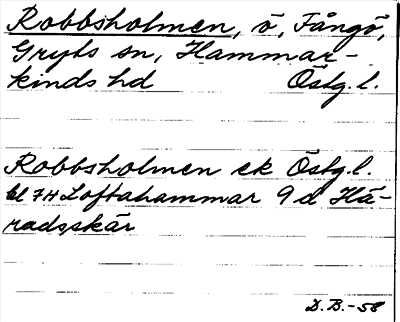 Robbsholmen, ö, Fångö,
Gryts sn, Hammar-
kinds hd Östg. l.
Robbsholmen ek Östg. l.
bl 7H Loftahammar 9 d Hä-
radsskär
D. B. -58